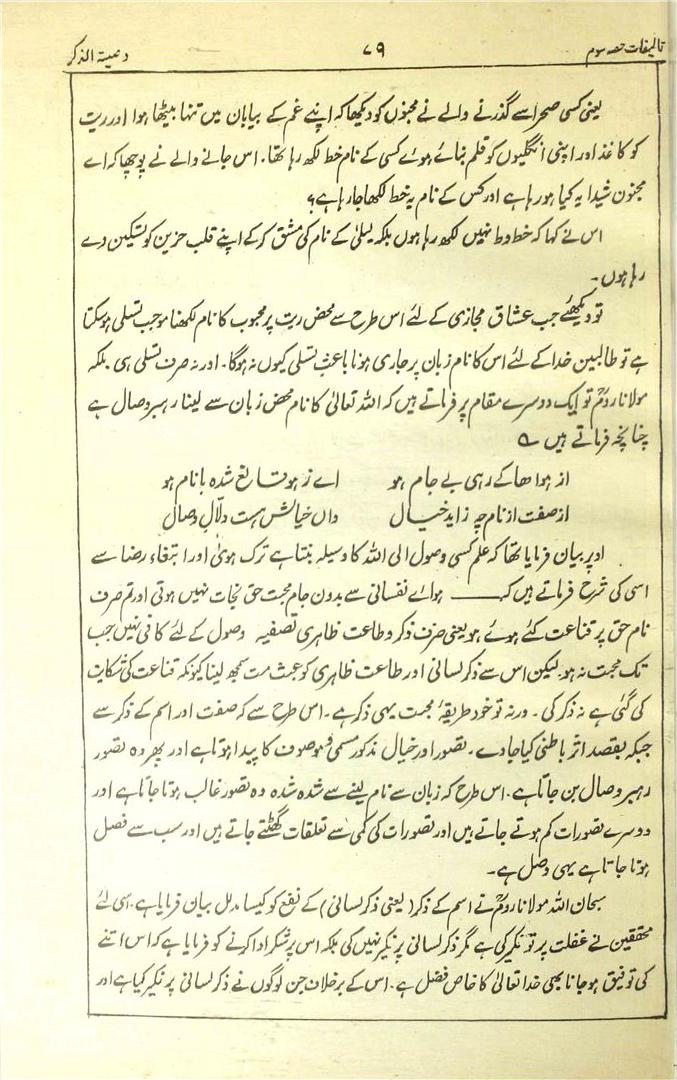 تالیفات حصہ سوم
۷۹
وصیۃ الذکر
یعنی کسی صحرا سے گذرنے والے نے مجنوں کو دیکھا کہ اپنے غم کے بیابان میں تنہا بیٹھا ہوا اور ریت
کو کاغذ اور اپنی انگلیوں کو قلم بنائے ہوئے کسی کے نام خط لکھ رہا تھا۔ اس جانے والے نے پوچھا کہ اے
مجنون شیدا یہ کیا ہو رہا ہے اور کس کے نام یہ خط لکھا جا رہا ہے؟
اس نے کہا کہ خط وط نہیں لکھ رہا ہوں بلکہ لیلیٰ کے نام کی مشق کر کے اپنے قلب حزین کو تسکین دے
رہا ہوں۔
تو دیکھئے جب عشاق مجازی کے لئے اس طرح سے محض ریت پر محبوب کا نام لکھنا موجب تسلی ہو سکتا
ہے تو طالبین خدا کے لئے اس کا نام زبان پر جاری ہونا باعث تسلی کیوں نہ ہوگا۔ اور نہ صرف تسلی ہی بلکہ
مولانا رومؒ تو ایک دوسرے مقام پر فرماتے ہیں کہ اللہ تعالیٰ کا نام محض زبان سے لینا رہبر وصال ہے
چنانچہ فرماتے ہیں ؎
از ہوا ھا کے رہی بے جام ہو اے ز ہو قانع شدہ با نام ہو
از صفت از نام چہ زاید خیال واں خیالش ہست دلّال وصال
اوپر بیان فرمایا تھا کہ علم کسی وصول الی اللہ کا وسیلہ بنتا ہے ترک ہویٰ اور ابتغاء رضا سے
اسی کی شرح فرماتے ہیں کہ ـــــ ہوائے نفسانی سے بدون جام محبت حق نجات نہیں ہوتی اور تم صرف
نام حق پر قناعت کئے ہوئے ہو یعنی صرف ذکر و طاعت ظاہری تصفیہ وصول کے لئے کافی نہیں جب
تک محبت نہ ہو۔ لیکن اس سے ذکر لسانی اور طاعت ظاہری کو عبث مت سمجھ لینا کیونکہ قناعت کی شکایت
کی گئی ہے نہ ذکر کی۔ ورنہ تو خود طریقۂ محبت یہی ذکر ہے۔ اس طرح سے کہ صفت اور اسم کے ذکر سے
جبکہ بقصد اثر باطنی کیا جاوے۔ تصور اور خیال مذکور مسمی و موصوف کا پیدا ہوتا ہے اور پھر وہ تصور
رہبر وصال بن جاتا ہے۔ اس طرح کہ زبان سے نام لینے سے شدہ شدہ وہ تصور غالب ہوتا جاتا ہے اور
دوسرے تصورات کم ہوتے جاتے ہیں اور تصورات کی کمی سے تعلقات گھٹتے جاتے ہیں اور سب سے فصل
ہوتا جاتا ہے یہی وصل ہے۔
سبحان اللہ مولانا رومؒ نے اسم کے ذکر (یعنی ذکر لسانی) کے نفع کو کیسا مدلل بیان فرمایا ہے۔ اسی لئے
محققین نے غفلت پر تو نکیر کی ہے مگر ذکر لسانی پر نکیر نہیں کی بلکہ اس پر شکر ادا کرنے کو فرمایا ہے کہ اس اتنے
کی توفیق ہو جانا بھی خدا تعالیٰ کا خاص فضل ہے۔ اس کے برخلاف جن لوگوں نے ذکر لسانی پر نکیر کیا ہے اور